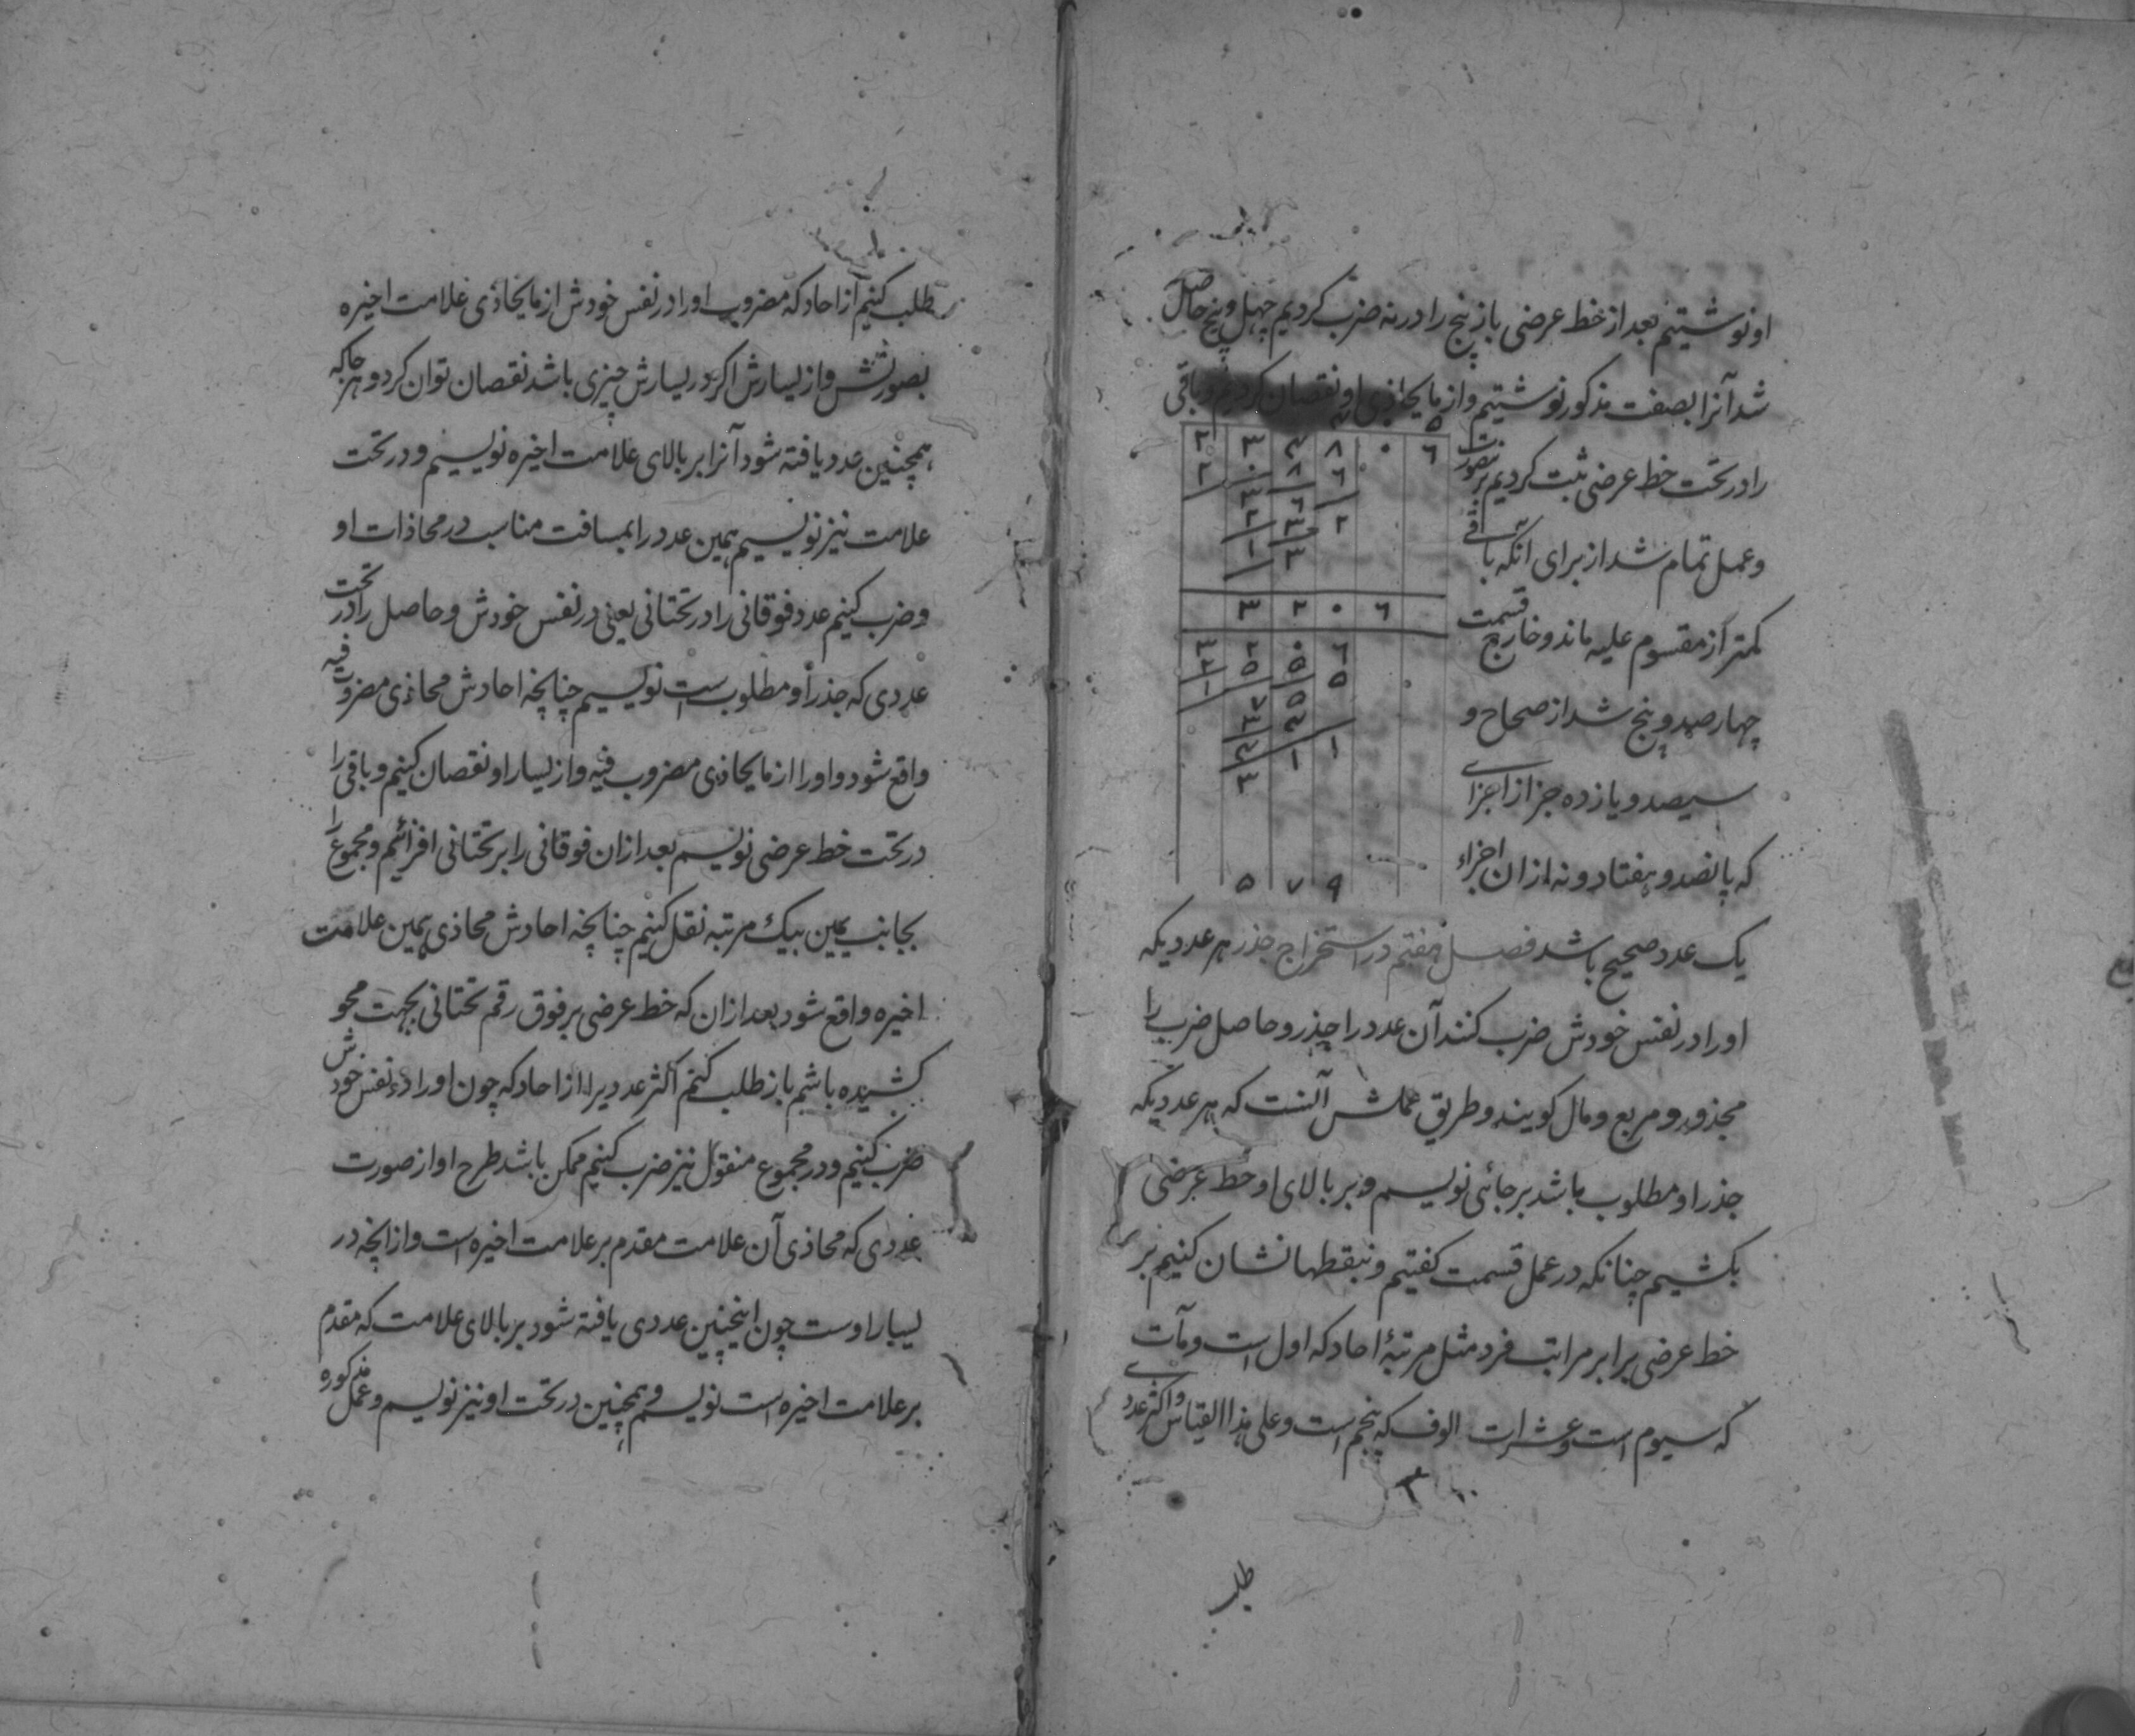 او نوشتیم بعد از خط عرضی باز پنج را در نه ضرب کردیم چهل و پنج حاصل
شد آنرا بصفت مذکور نوشتیم و از مایحاذی او نقصان کردیم و باقی
را در تحت خط عرضی ثبت کردیم بر صورت
و عمل تمام شد از برای آنکه باقی
کمتر از مقسوم علیه ماند و خارج قسمت
چهار صد و پنج شد از صحاح و
سیصد و یازده جز از اجزای
که پانصد و هفتاد و نه از ان اجزاء
۲ ۳ ۴ ۸ ۰ ٦
۲ ۰ ۸ ٦
۳ ٦
۲ ۳ ۲
۱ ۳
۳ ۲ ۰ ٦
۳ ۲ ۰ ٦
۲ ۵ ۵ ۵
۱
۷ ۵
۳ ۴
۴ ۱ ۱
۳
۵ ۷ ۹
یک عدد صحیح باشد فصل هفتم در استخراج جذر هر عدد یکه
او را در نفس خودش ضرب کنند آن عدد را جذر و حاصل ضرب را
مجذور و مربع و مال کویند و طریق عملش آنست که هر عدد یکه
جذر او مطلوب باشد بر جائی نویسیم و بر بالای او خط عرضی
بکشیم چنانکه در عمل قسمت کفتیم و بنقطها نشان کنیم بر
خط عرضی برابر مراتب فرد مثل مرتبهٔ احاد که اول است و مآت
که سیوم است و عشرات الوف که پنجم است و علی هذا القیاس و اکثر عددی
طلب
طلب کنیم از احاد که مضروب او را در نفس خودش از مایحاذی علامت اخیره
بصورتش و از یسارش اکر در یسارش چیزی باشد نقصان توان کرد و هر جا که
همچنین عدد یافته شود آنرا بر بالای علامت اخیره نویسیم و در تحت
علامت نیز نویسیم همین عدد را بمسافت مناسب در محاذات او
و ضرب کنیم عدد فوقانی را در تحتانی یعنی در نفس خودش و حاصل را در تحت
عددی که جذر او مطلوب است نویسیم چنانچه احادش محاذی مضروب فیه
واقع شود و او را از مایحاذی مضروب فیه و از یسار او نقصان کنیم و باقی را
در تحت خط عرضی نویسیم بعد ازان فوقانی را بر تحتانی افزائیم و مجموع را
بجانب یمین بیک مرتبه نقل کنیم چنانچه احادش محاذی همین علامت
اخیره واقع شود بعد ازان که خط عرضی بر فوق رقم تحتانی بجهت محو
کشیده باشیم باز طلب کنیم اکثر عددیرا از احاد که چون او را در نفس خودش
ضرب کنیم و در مجموع منقول نیز ضرب کنیم ممکن باشد طرح او از صورت
عددی که محاذی آن علامت مقدم بر علامت اخیره است و از انچه در
یسار اوست چون اینچنین عددی یافته شود بر بالای علامت که مقدم
بر علامت اخیره است نویسیم و همچنین در تحت او نیز نویسیم و عمل مذکوره